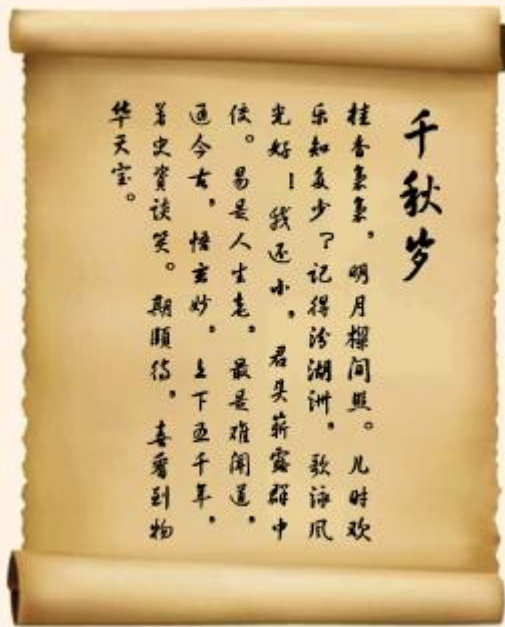 千秋岁
桂香袅袅，明月樑间照。儿时欢
乐知多少？记得汾湖洲，歌泳风
光好！我还小，君头崭露群中
佼。易是人生老，最是难闻道，
通今古，悟玄妙，上下五千年，
著史资谈笑。期颐待，喜看到物
华天宝。